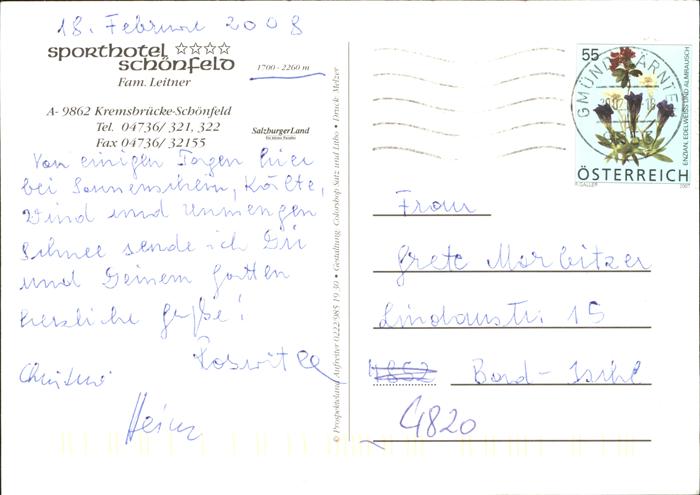 18. Februar 2008
sporthotel ☆☆☆☆
schönfeld
1700 - 2260 m
Fam. Leitner
A- 9862 Kremsbrücke-Schönfeld
Tel. 04736/ 321, 322
Fax 04736/ 32155
SalzburgerLand
Von einigen Tagen hier
bei Sonnenschein, Kälte,
Wind und Unmengen
Schnee sende ich Dir
und Deinem Gatten
herzliche Grüße!
Roswitha
Christine
Heinz
© Prospektdienst Aufreiter 0222/985 19 39 • Gestaltung: Colorshop Satz und Litho • Druck: Melzer
55
GMÜND KÄRNTEN
ENZIAN, EDELWEISS UND ALMRAUSCH
ÖSTERREICH
P.GALLER
2007
Frau
Grete Morbitzer
Lindaustr. 15
4852 Bad-Ischl
4820